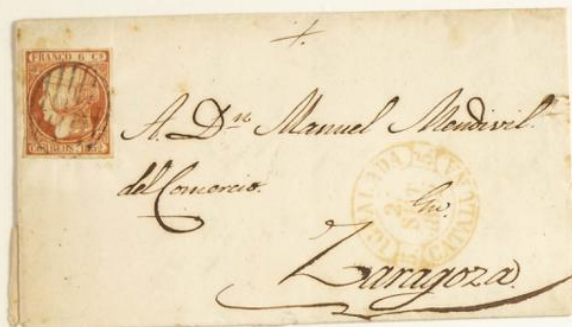 FRANCO 6 Cs
CORREOS. 1852
A. Dn. Manuel Mendivil.
del Comercio.
En.
Zaragoza.